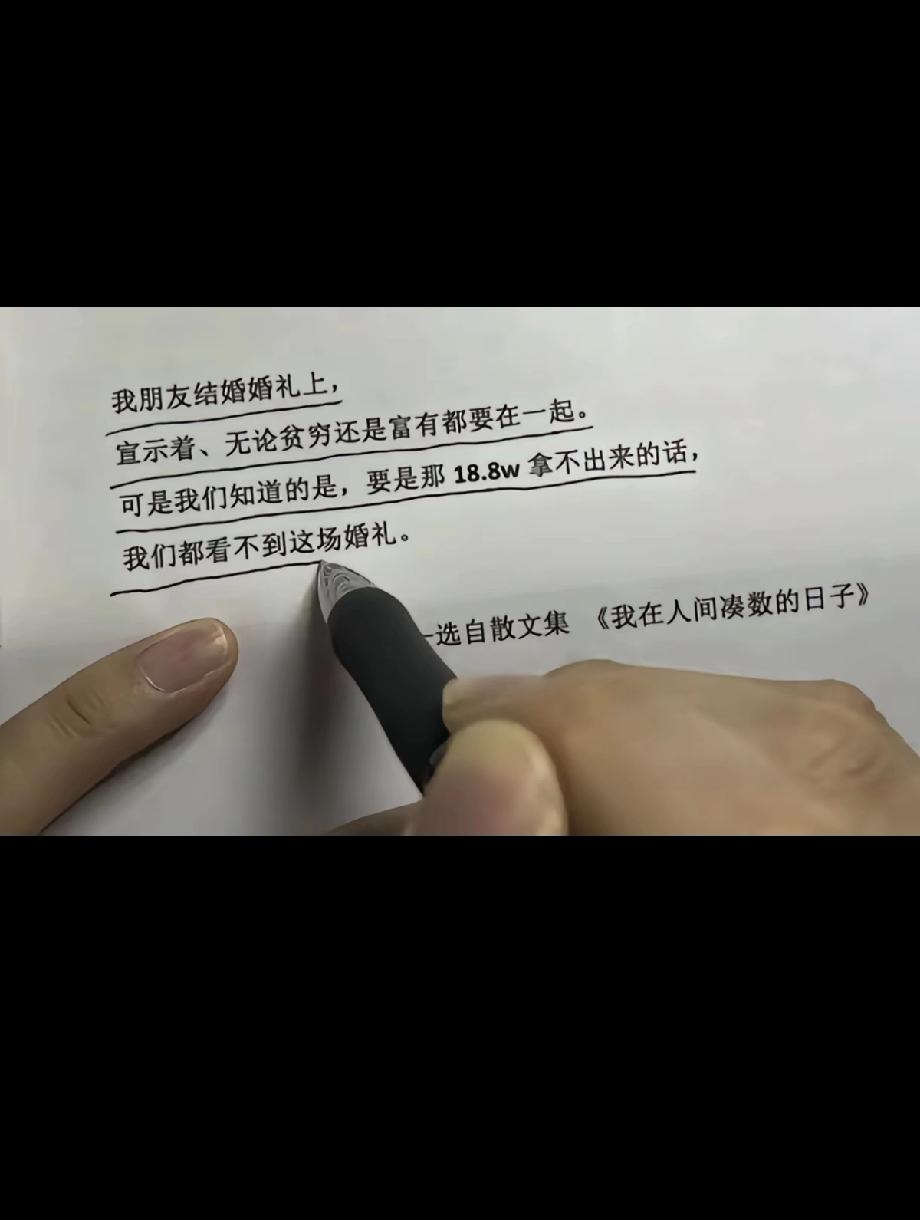 我朋友结婚婚礼上，
宣示着、无论贫穷还是富有都要在一起。
可是我们知道的是，要是那 18.8w 拿不出来的话，
我们都看不到这场婚礼。
-选自散文集 《我在人间凑数的日子》